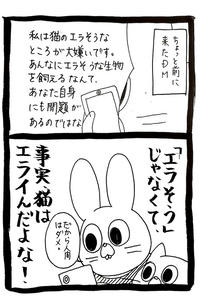 ちょっと前に
来たDM
私は猫のエラそうな
ところが大嫌いです。
あんなにエラそうな生物
を飼えるなんて、
あなた自身
にも問題が
あるのではな
「エラそう」
じゃなくて、
事実、猫は
エライんだよな!
だから人間
はダメ。